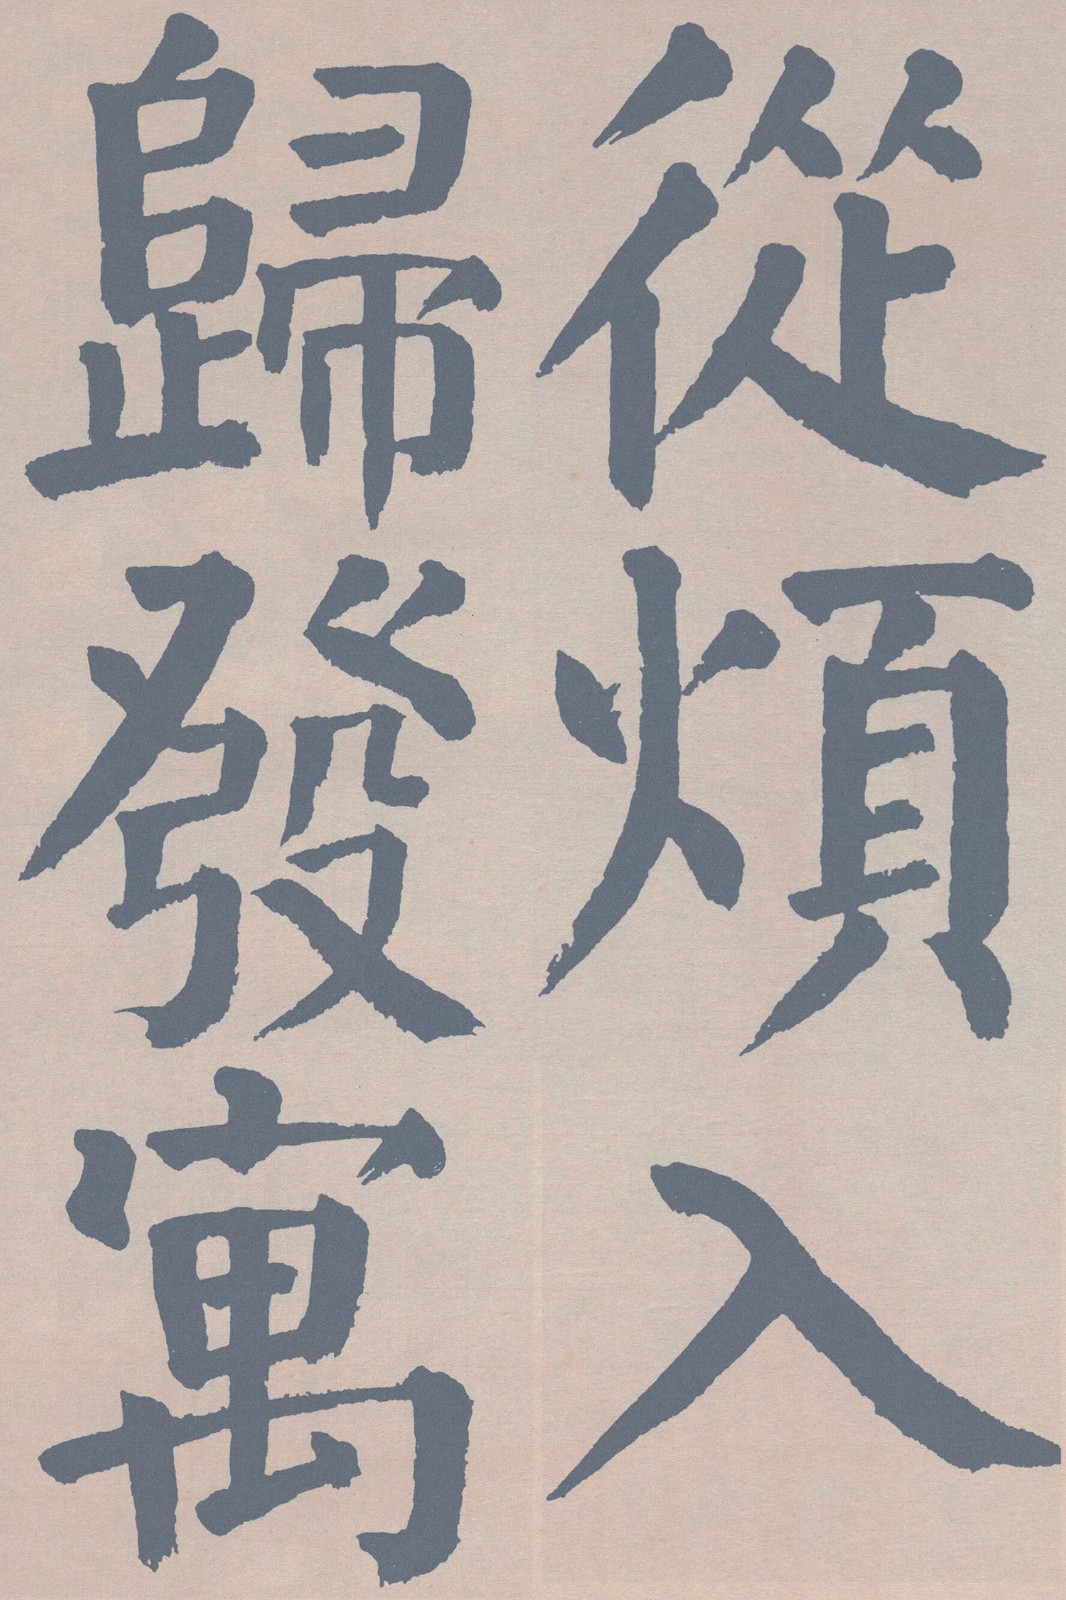 從煩入
歸發寓